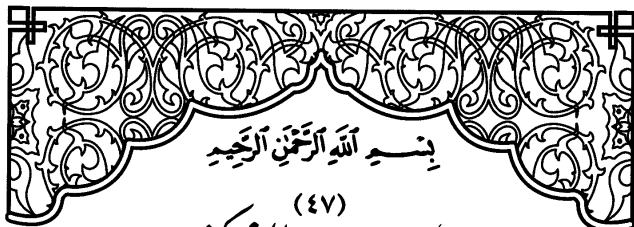 بِسْمِ ٱللَّهِ ٱلرَّحْمَٰنِ ٱلرَّحِيمِ
(٤٧)